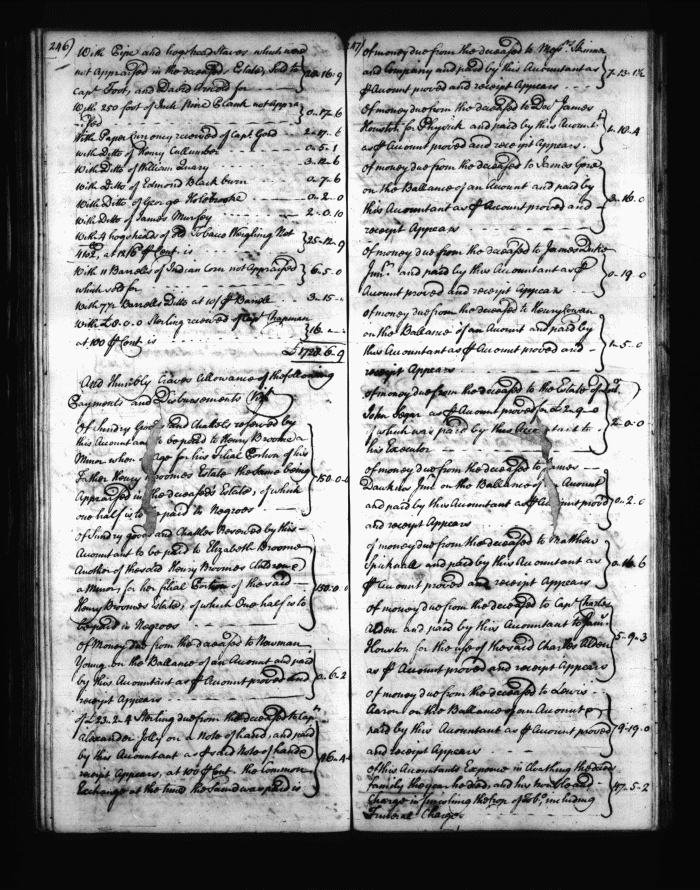 246)
With Pipe and hogshead Staves which were
not appraised in the deceaseds Estate, Sold to } 20.16.9
Capt. Foot, and David Arnold for
With 250 foot of Inch Pine Plank not Appra } 0..17..6
ised
With Paper Currency received of Capt. Gold 2..17..6
with Ditto of Henry Cullumber 0..5..1
with Ditto of William Quary 3..12..6
With Ditto of Edmond Blackburn 0..7..6
With Ditto of George 0..2..0
With Ditto of James Murfey 2..0..10
With 4 hogsheads of Tobacco Weighing Net } 25..12..9
at 12/6 Cent. is
With 11 Barrells of Indian Corn not Appraised } 6..5..0
which sold for
With 7½ Barrells Ditto at 10/ Barrell 3..15..
With £8..0..0 Sterling received of Capt. Chapman } 16
at 100 Cent. is
£1728..6..9
And Humbly Craves Allowance of the following
Payments and Disbursements Vizt.
Of Sundry Goods and Chattels reserved by
this Accountant to be paid to Henry Broome a
Minor when Age for his Filial Portion of his
Father Henry Broomes Estate the Same being } 150..0..0
Appraised in the deceaseds Estate, of which
one half is to paid in Negroes
Of Sundry goods and Chattles Reserved by this
Accountant to be paid to Elizabeth Broome
Another of the said Henry Broomes Children
a Minor for her filial Portion of the said } 150..0..0
Henry Broomes Estate, of which One half is to
be paid in Negroes
Of Money due from the deceased to Newman
Young on the Ballance of an Account and paid
by this Accountant as Account proved and } 0..6..2
receipt Appears
Of £23..2..4 Sterling due from the deceased to Capt.
Alexander Jolly on a Note of hand, and paid
by this Accountant as said Note of hand & } 46..4
receipt Appears, at 100 Cent. the Common
Exchange at the time the Same was paid is
247)
Of money due from the deceased to Messrs.
and Company and paid by this Accountant as } 7..13..1½
Account proved and receipt Appears
Of money due from the deceased to Doct. James
Houston for Physick and paid by this Accountt.
as Account proved and receipt Appears
Of money due from the deceased to James
on the Ballance of an Account and paid by
this Accountant as Account proved and } 3..16..0
receipt Appears
Of money due from the deceased to James Duke
Junr. and paid by this Accountant as } 0..19..0
Account proved and receipt Appears
Of money due from the deceased to Henry Cowan
on the Ballance of an Account and paid by
this Accountant as Account proved and } 1..5..0
receipt Appears
Of money due from the deceased to the Estate of
John as Account proved for £2..9..0
which was paid by this Accountant to } 2..0..0
his Executor
Of money due from the deceased to James
Dawkins Junr. on the Ballance of Account } 0..2..0
and paid by this Accountant as Account proved
and receipt Appears
Of money due from the deceased to Matthew
and paid by this Accountant as
Account proved and receipt Appears
Of money due from the deceased to Capt. Charles
Alden and paid by this Accountant to James
Houston for the use of the said Charles Alden } 5..9..3
as Account proved and receipt Appears
Of money due from the deceased to Lewis
Aaron on the Ballance of an Account &
paid by this Accountant as Account proved } 9..19..0
and receipt Appears
Of this Accountants Expence in Cloathing the deced
family the year he died, and his
Charge in finishing the Crop of Tobo. including } 47..5..2
Funeral Charges